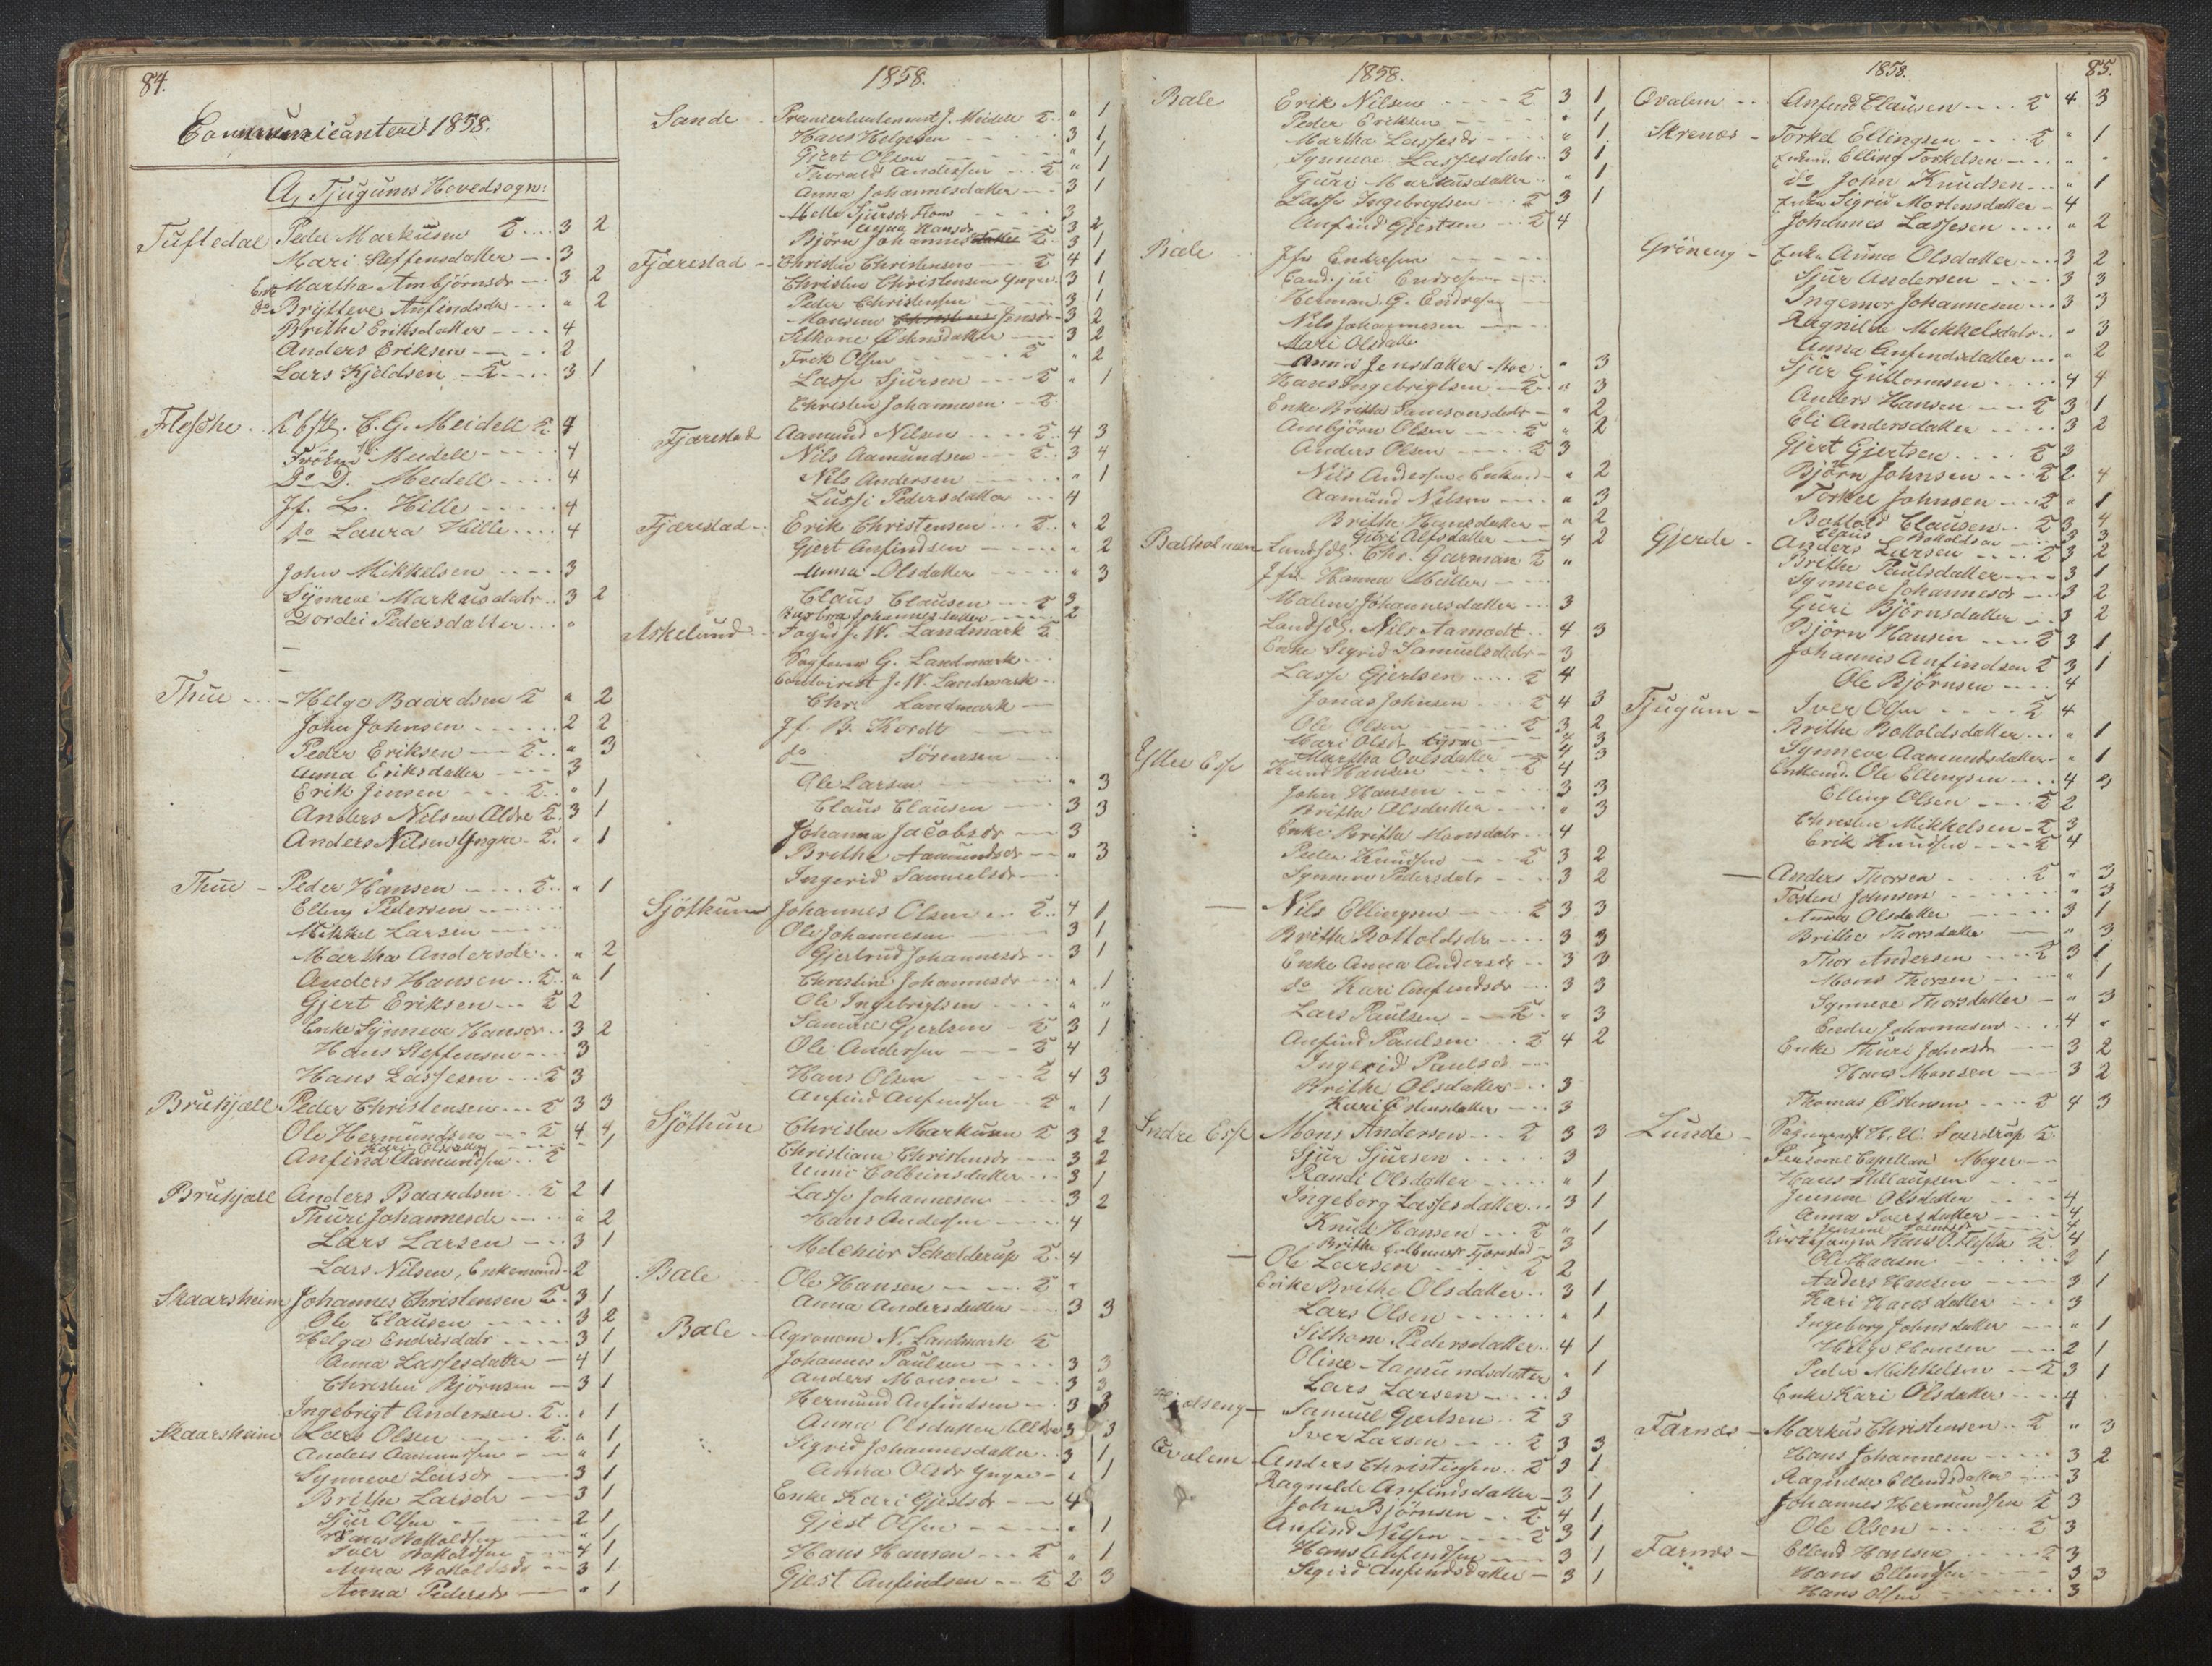 84.
Communicantere 1858.
A, Tjugums Hovedsogn:
Tuftedal Peder Markusen 3 2
Mari Steffensdatter 3
Enke Martha Ambjörnsdr 3 2
do Brytteve Anfindsdr " 2
Brithe Eriksdatter 4
Anders Eriksen 2
Lars Kjeldsen 3 1
Flesche C. G. Meidell 4
Fröken Meidell 4
Do D. Meidell 4
Jf. L. Hille 4
do Laura Hille 4
John Mikkelsen 3
Synneve Markusdatr 3 2
Gordei Pedersdatter "
Thue Helge Baardsen " 2
John Johnsen 2 2
Peder Eriksen " 3
Anna Eriksdatter 3
Erik Jensen " 1
Anders Nilsen Aldre 3 1
Anders Nilsen Yngre " 1
Thue Peder Hansen " 1
Elling Pedersen
Mikkel Larsen
Martha Andersdr " 2
Anders Hansen " 1
Gjert Eriksen 2
Enke Synneve Hansdr 3 2
Hans Steffensen 3
Hans Lassesen 3
Brukjæll Peder Christensen 3 3
Ole Hermundsen 4 4
Kari Olsdatter " 1
Anfind Aamundsen
Brukjæll Anders Baardsen 2 1
Thuri Johannesdr " 2
Lars Larsen 3 1
Lars Nilsen, Enkemand 2
Skaarsheim Johannes Christensen 3 1
Ole Clausen 3 2
Helga Endresdatr 3 1
Anna Lassesdatter 4 1
Christen Björnsen 3 1
Ingebrigt Andersen " 1
Skaarsheim Lars Olsen " 1
Anders Aamundsen " 1
Synneve Larsdr 3 1
Brithe Larsdr 3 1
Sjur Olsen 2 1
Hans Botholdsen " 1
Iver Botholdsen 4 1
Anna Botholdsdr 3 1
Anna Pedersdr " 1
1858.
Sande Premierleutenant J. Meidell " 1
Hans Helgesen 3 1
Gjert Olsen " 1
Thorald Andersen " 1
Anna Johannesdatter 3 1
Mette Sjursdr Flom 3
Anna Hansdr 3 2
Björn Johannes 3 1
Fjærestad Christen Christensen 4 1
Christen Christensen Yngre 3 1
Peder Christensen 3 1
Jensdr 3 2
Datter 3 2
Erik Olsen " 2
Lasse Sjursen " 1
Christen Johannesen
Fjærestad Aamund Nilsen 4 3
Nils Aamundsen 3 4
Nils Andersen " 1
Lussi Pedersdatter 4
Fjærestad Erik Christensen " 2
Gjert Anfindsen " 2
Anna Olsdatter " 3
Claus Clausen 3
Barbra Johannesdatter 2
Askelund Fogd J. W. Landmark
Sagfører G. Landmark
J. W. Landmark
Chr. Landmark
Jf. B. Kordt
do Sörensen
Ole Larsen " 3
Claus Clausen 3 3
Johanna Jacobsdr 3
Brithe Aamundsdr " 3
Ingerid Samuelsdr
Sjöthun Johannes Olsen 4 1
Ole Johannesen 3 1
Gjertrud Johannesdr 3 1
Christine Johannesdr " 1
Ole Ingebrigtsen " "
Samuel Gjertsen 3 1
Ole Andersen 4
Hans Olsen 4 3
Anfind Anfindsen " 1
Sjöthun Christen Markusen 3 2
Christiane Christensdr 3 2
Unni Colbeinsdatter 3 1
Lasse Johannesen 3 2
Hans Andersen 4
Melchior Schelderup 4
Bale Ole Hansen "
Anna Andersdatter 3 3
Bale Agronom N. Landmark
Johannes Paulsen 3 3
Anders Monsen 3 3
Hermund Anfindsen 3 3
Anna Olsdatter Aldre 3 3
Sigrid Johannesdatter 3 1
Anna Olsdr Yngre " 1
Enke Kari Gjestsdr 4
Gjest Olsen " 1
Hans Hansen " 1
Gjest Anfindsen 2 3
1858.
Bale Erik Nilsen 3 1
Peder Eriksen " 1
Martha Lassesdr " 1
Synneve Lassesdatr 3 1
Guri Markusdatter " 1
Lasse Ingebrigtsen 3 1
Anfind Gjestsen 4
Bale Jfr Endresen
Cand. jur. Endresen
Herman G. Endresen
Nils Johannesen
Mari Olsdatter
Anna Jensdatter Moe " 3
Hans Ingebrigtsen " 3
Enke Britha Samsonsdatr " 2
Ambjörn Olsen " 2
Anders Olsen 3
Nils Andersen Enkemd " 2
Aamund Nilsen " 3
Brithe Hansdatter " 2
Guri Alfsdatter 4 2
Balholmen Landhdl. Chr. Garman "
Jfr Hanna Müller
Malene Johannesdatter 3
Landhdl. Nils Aamodt 4 3
Enke Sigrid Samuelsdatr 3
Lasse Gjertsen 4
Jonas Johnsen 4 3
Ole Olsen 3 2
Mari Olsd. 4 3
Martha Ovesdatter 4 3
Ytre Esse Knud Hansen 4
John Hansen 3 3
Britha Olsdatter " 3
Enke Britha Monsdatr 4
Peder Knudsen 3 2
Synneve Pedersdatr 3 2
Nils Ellingsen 3 3
Britha Bottoldsdr 3 3
Enke Anna Andersdr 3 3
do Kari Anfindsdr 3 3
Lars Paulsen " 3
Anfind Paulsen 4 2
Ingerid Paulsdr
Brithe Olsdatter 3
Kari Østensdatter 3
Indre Esse Mons Andersen 3 3
Sjur Sjursen 3
Randi Olsdatter " 1
Ingeborg Lassesdatter 3 1
Knud Hansen " 1
Brithe Fjærestad 3
Ole Larsen 2
Enke Brithe Olsdatter 3 1
Lars Olsen " 1
Sithone Pedersdatter 4 1
Oline Aamundsdatter " 1
Lars Larsen 3
Samuel Gjertsen 3
Iver Larsen 3 3
Qvalem Anders Christensen 3 1
Ragnilde Anfindsdatter 3 1
John Björnsen 4 1
Anfind Nilsen 3 1
Hans Anfindsen 3 1
Sigrid Anfindsdatter 3 1
1858. 85.
Qvalem Anfind Clausen 4 3
Skrenæs Torkel Ellingsen " 1
Enkmd. Elling Torkelsen " "
do John Knudsen " 1
Enke Sigrid Mortensdatter 4
Johannes Lassesen " 2
Gröneng Enke Anna Olsdatter 3 2
Sjur Andersen 3 3
Ingemor Johannesen 3 3
Ragnilde Mikkelsdatr " 3
Anna Anfindsdatter " 2
Sjur Guttormsen 4 4
Anders Hansen 3 1
Eli Andersdatter 3 2
Gjert Gjertsen 3
Björn Johnsen 2 4
Torkel Johnsen " 1
Bottold Clausen 3 4
Claus Bottoldsen 3 3
Gjerde Anders Larsen 3 2
Brithe Paulsdatter 3 1
Synneve Johannesdr 3 2
Guri Björnsdatter 3 2
Björn Hansen 3 1
Johannes Anfindsen 3 1
Ole Björnsen 4
Tjugum Iver Olsen 4
Brithe Bottoldsdatter " 1
Synneve Aamundsdatter " 1
Enkemd. Ole Ellingsen 4 3
Elling Olsen 2
Christen Mikkelsen 3
Erik Knudsen 4
Anders Thorsen " 3
Tosten Johnsen " 3
Anna Olsdatter 3 1
Brithe Thorsdatter " 3
Thor Andersen 3 1
Mons Thorsen " 1
Synneve Thorsdatter " 3
Endre Johannesen 4 "
Enke Thuri Johnsdr 3 2
Hans Monsen 3 2
Thomas Østensen 4 3
Lunde Sogneprest H. U. Sverdrup
Personel Capellan Meyer
Hans
Olsdatter 4
Anna Iversdatter 4
Hans O. Flesche 4
Ole Hansen 3 1
Anders Hansen 3 1
Kari Hansdatter 3
Ingeborg Johnsdatter " 1
Helge Hansen 2 1
Peder Mikkelsen 3 1
Enke Kari Olsdatter 4
Farnæs Markus Christensen " 3
Hans Johannesen 3 2
Ragnilde Ellendsdatter 3
Johannes Hermundsen 3
Ole Olsen 3
Farnæs Ellend Hansen 3
Hans Ellendsen 3 3
Hans Olsen 3